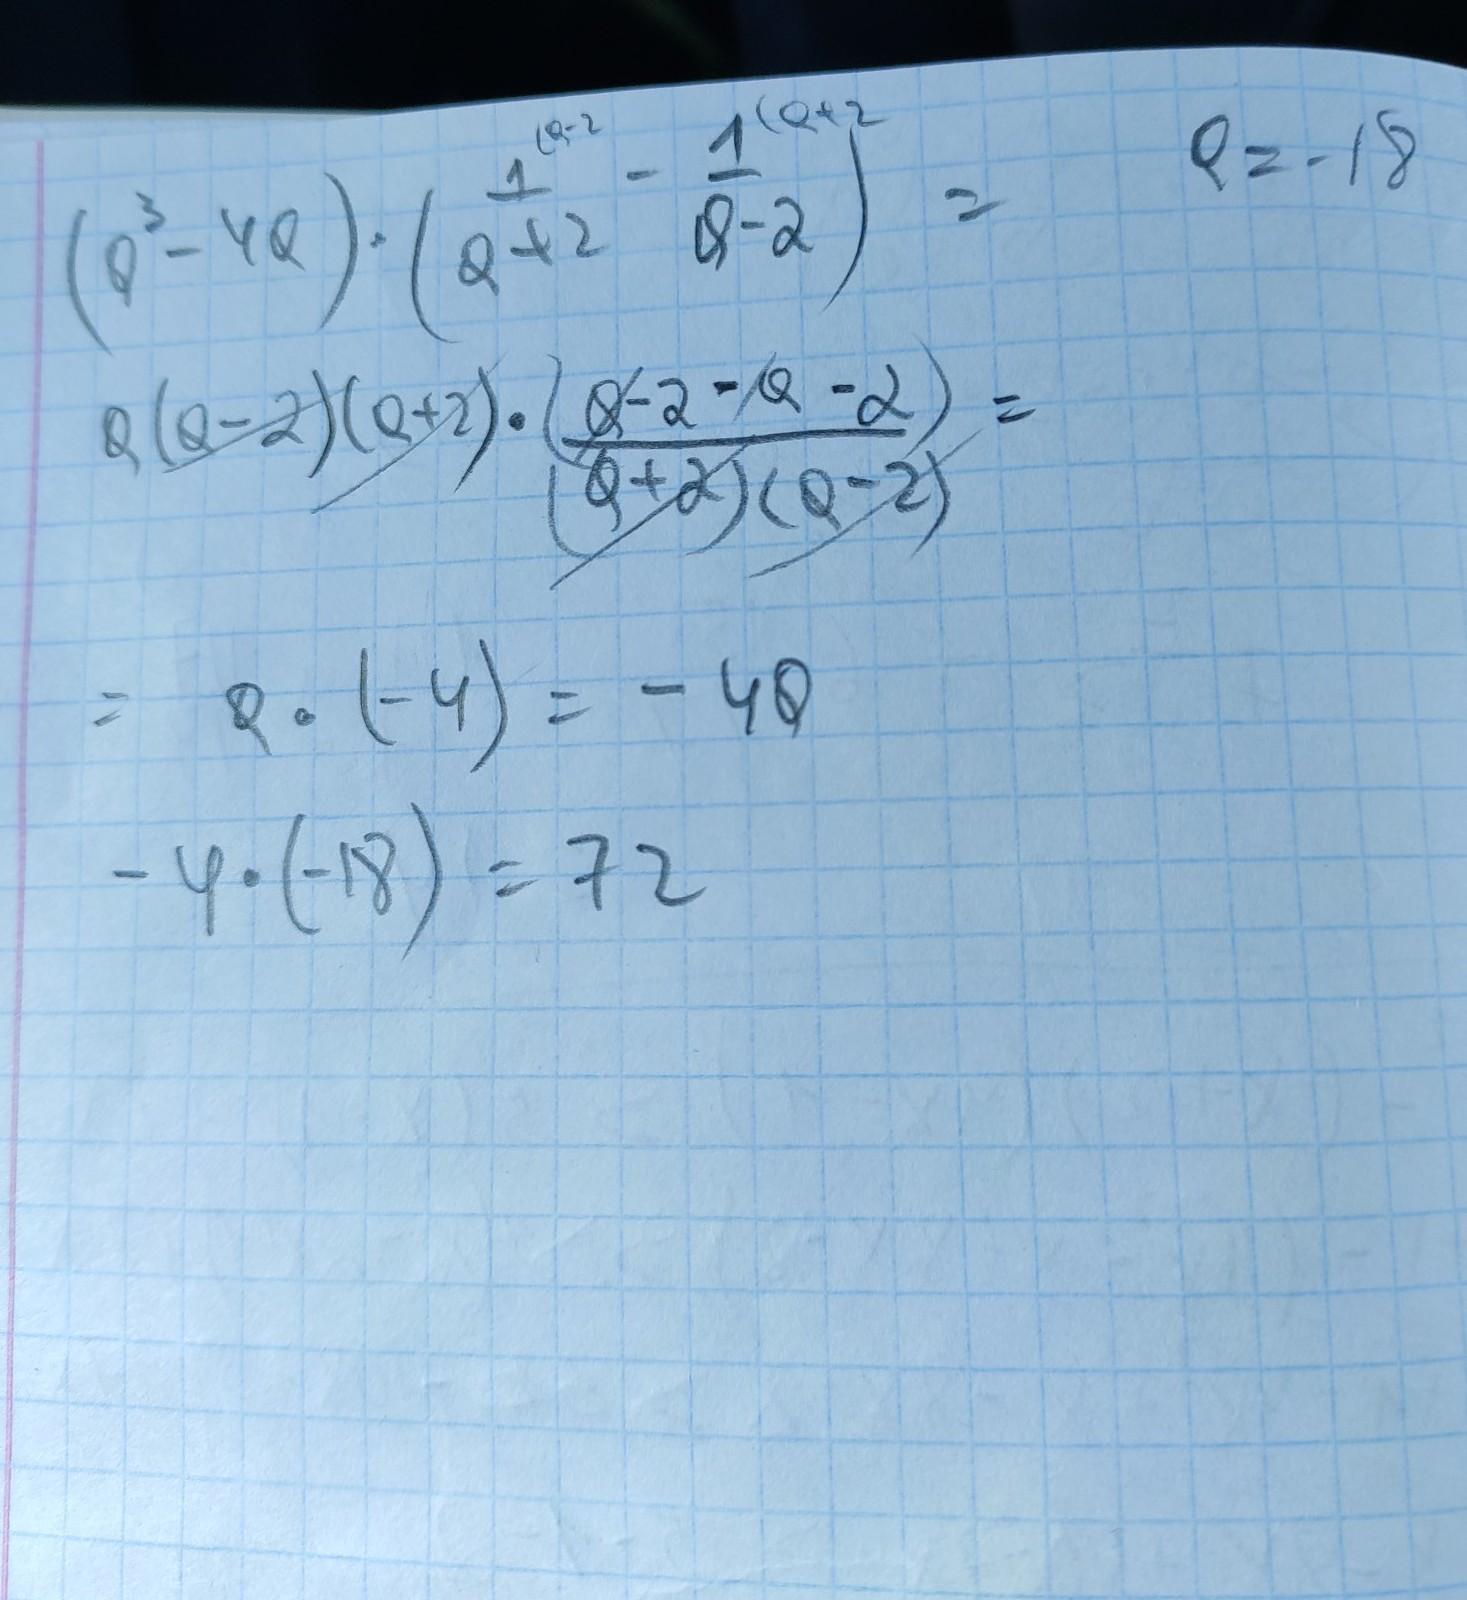 (a³ - 4a) · (1/(a+2) (a-2 - 1/(a-2) (a+2) = a = -18
a(a-2)(a+2) · (a-2-a-2)/((a+2)(a-2)) =
= a · (-4) = -4a
-4 · (-18) = 72